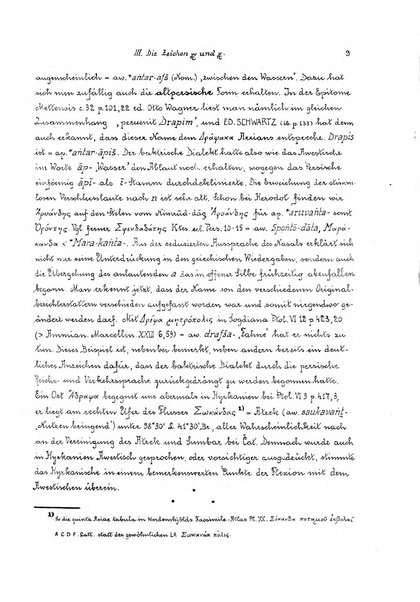 III. Die Zeichen und . 9
augenscheinlich = aw. *antar-afš (Nom.) „zwischen den Wassern". Dazu hat
sich nun zufällig auch die altpersische Form erhalten. In der Epitome
Mettensis c. 32 p. 101, 22 ed. Otto Wagner liest man nämlich im gleichen
Zusammenhang „peruenit Drapim", und ED. SCHWARTZ hat denn
auch erkannt, dass dieser Name dem Δράψακα Arrians entspreche. Drapis
ist = ap. *antar-āpiš. Der baktrische Dialekt hatte also wie das Awestische
im Worte āp- „Wasser" den Ablaut noch erhalten, wogegen das Persische
einförmig āpi- als i-Stamm durchdeklinierte. Die Erweichung der stimm-
losen Verschlusslaute nach n ist sehr alt. Schon bei Herodot finden wir
Ἀρυάνδης auf den Stelen vom Nimrūd-dāg Ἀροάνδης für ap. *aruvanta- sonst
Ὀρόντης. Vgl. ferner Σφενδαδάτης Ktes. ecl. Pers. 10-15 = aw. Spəntō-dāta, Μαρά-
κανδα < *Mara-kanta-. Aus der reduzierten Aussprache des Nasals erklärt sich
nicht nur seine Unterdrückung in den griechischen Wiedergaben, sondern auch
die Übergehung des anlautenden a das in offene Silbe frühzeitig abenfallen
begann. Man erkennt jetzt, dass der Name von den verschiedenen Original-
berichterstattern verschieden aufgefasst worden war und somit nirgendwo ge-
ändert werden darf. Mit Δρέψα μητρόπολις in Sogdiana Ptol. VI 12 p. 423, 20
(> Ammian Marcellin. XXIII 6, 59) = aw. drafša- „Fahne" hat er nichts zu
tun. Dieses Beispiel ist, nebenbei bemerkt, neben andern bereits ein deut-
liches Anzeichen dafür, dass der baktrische Dialekt durch die persische
Reichs- und Verkehrssprache zurückgedrängt zu werden begonnen hatte.
Ein Ort Ἄδραψα begegnet uns abermals in Hyrkanien bei Ptol. VI 9 p. 417, 3,
er liegt am rechten Ufer des Flusses Σωκάνδας ¹) = Atrek (aw. saukavant-
„Nutzen bringend") unter 38°30' S. 41°30' Br., aller Wahrscheinlichkeit nach
an der Vereinigung des Atrek und Sumbar bei Čat. Demnach wurde auch
in Hyrkanien Awestisch gesprochen, oder vorsichtiger ausgedrückt, stimmte
das Hyrkanische in einem bemerkenswerten Punkte der Flexion mit dem
Awestischen überein.
¹) So die quinta Asiae tabula in Nordenskjölds Facsimile-Atlas Pl. XX. Σώκανδα ποταμοῦ ἐκβολαί
A C D F. Latt. statt der gewöhnlichen LA Σωκανάα πόλις.